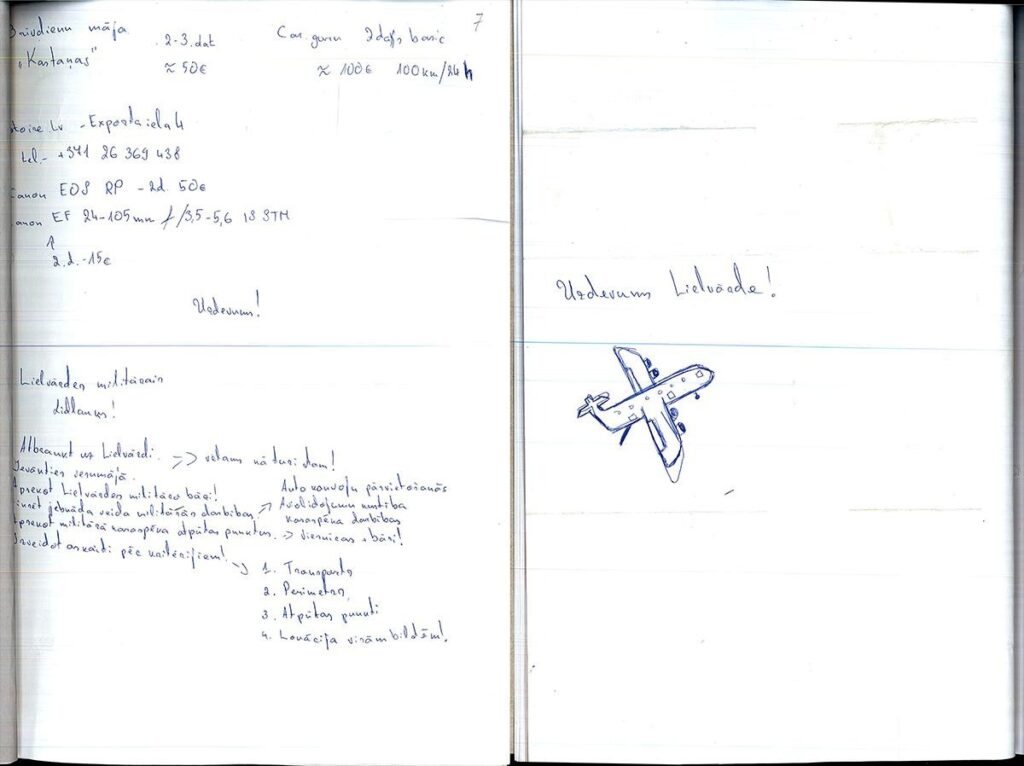 7
Brīvdienu māja 2-3.dat
"Kastaņas" ≈ 50€
Car.guru 2days basic
≈ 100€ 100km/24h
store Lv - Eksporta iela 4
tel. - +371 26 369 438
Canon EOS RP - 2d. 50€
Canon EF 24-105mm f/3,5-5,6 IS STM
↑
2.d. - 15€
Uzdevums!
Lielvārdes militārais
lidlauks!
Atbraukt uz Lielvārdi. => vētams nā turi dom!
Ievākties viesumājā.
Aprakst Lielvārdes militāro bāzi!
jebkāda veida militārās darbības ->
militārā karaspēka atpūtas punktus. -> viesnīcas + bāri!
Izveidot pēc kritērijiem! ->
Auto konvoju pārvietošanās
Aviolidojumu kustība
karaspēka darbības
1. Transports
2. Perimetrs
3. Atpūtas punkti
4. Lokācija visām bildēm!
Uzdevums Lielvārde!